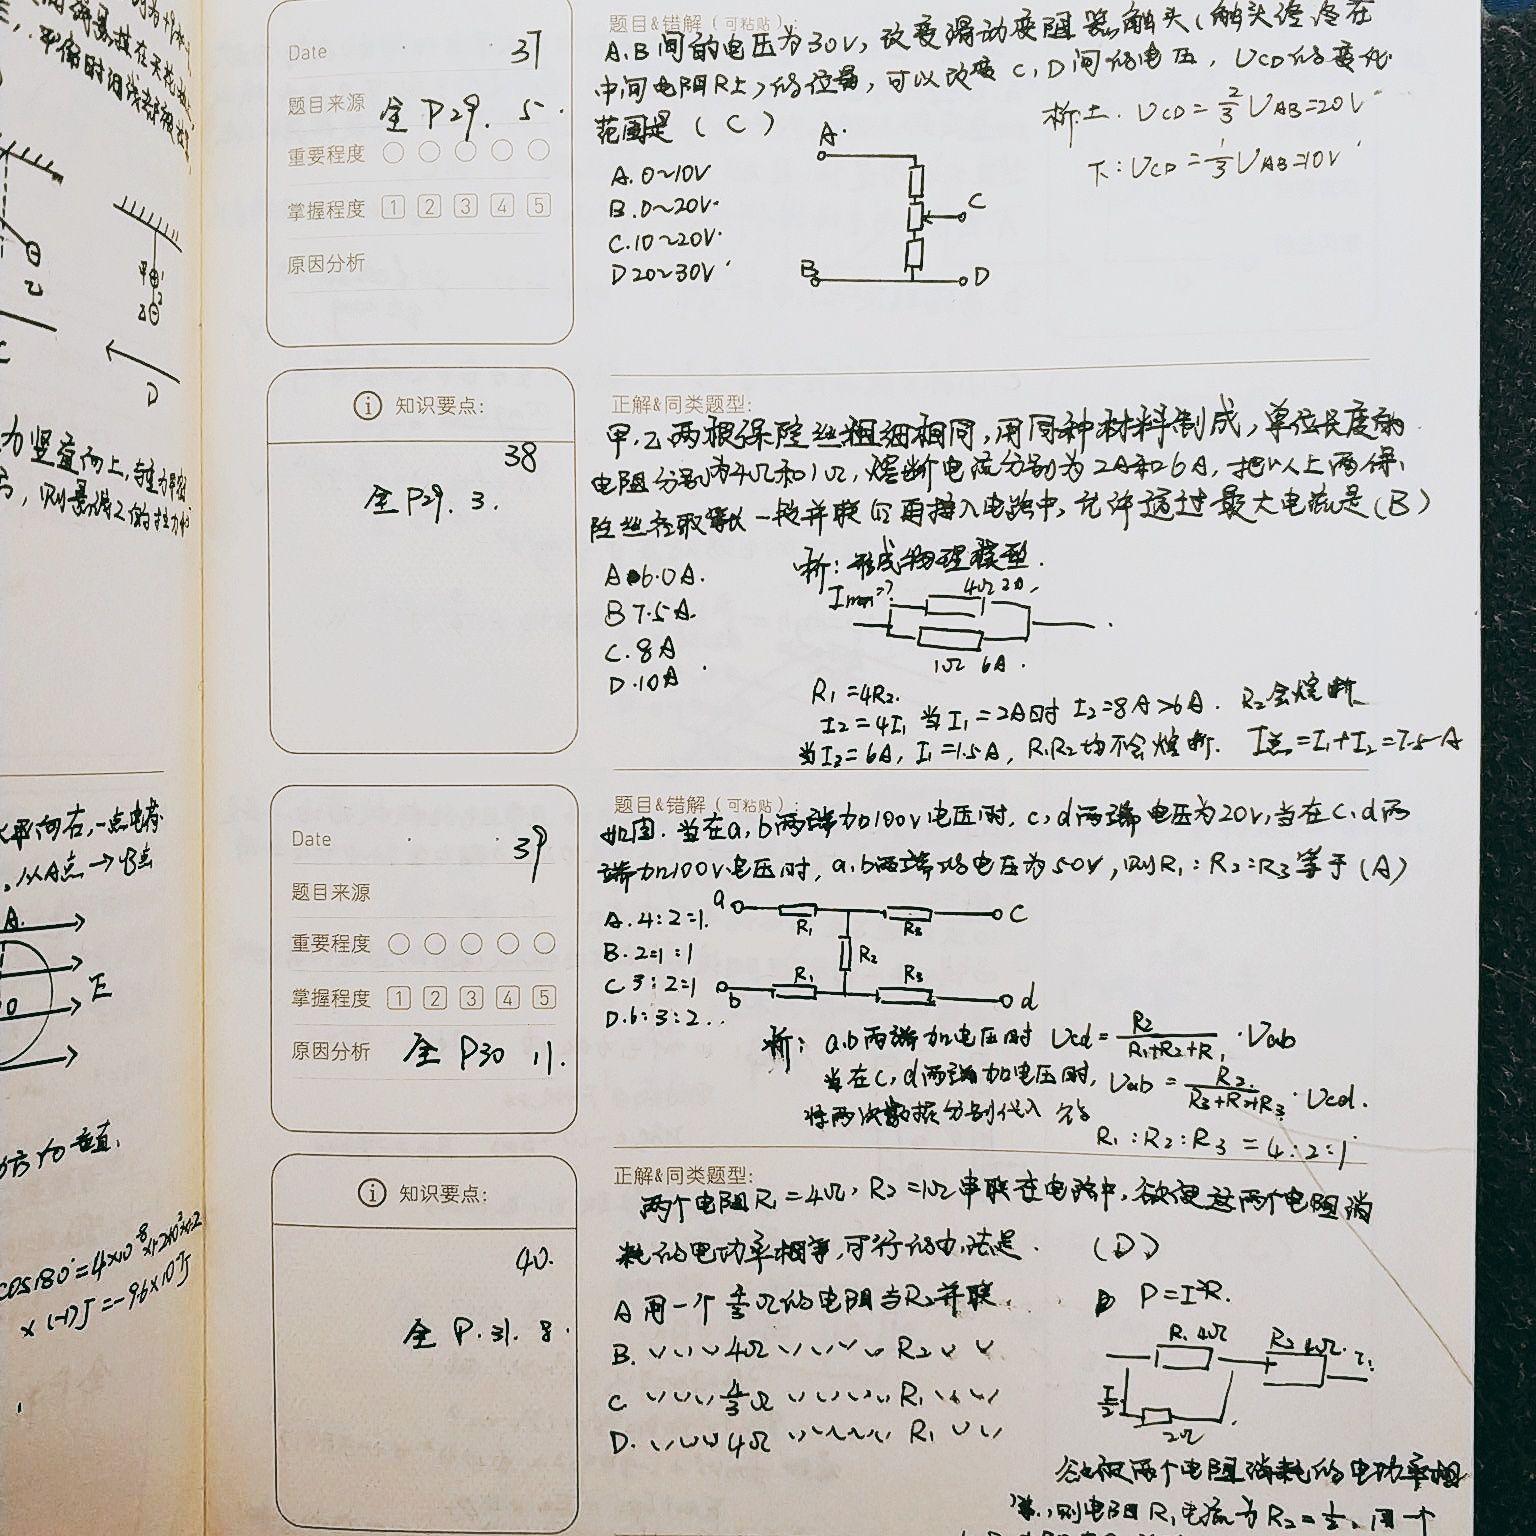 Date
37
题目来源
全 P29. 5.
重要程度
掌握程度 1 2 3 4 5
原因分析
题目&错解（可粘贴）:
A.B间的电压为30V，改变滑动变阻器触头（触头始终在
中间电阻R上）的位置，可以改变C，D间的电压，UCD的变化
范围是（C）
析：上. UCD=2/3 UAB=20V
下：UCD=1/3 UAB=10V
A. 0~10V
B. 0~20V.
C. 10~20V.
D 20~30V
A.
C
B
D
知识要点:
38
全 P29. 3.
正解&同类题型:
甲，乙两根保险丝粗细相同，用同种材料制成，单位长度的
电阻分别为4Ω和1Ω，熔断电流分别为2A和6A，把以上两保
险丝各取等长一段并联后再接入电路中，允许通过最大电流是（B）
A 6.0A.
B 7.5A.
C. 8A
D. 10A
析：形成物理模型.
Imax=?
4Ω 2A,
1Ω 6A.
R1=4R2.
I2=4I1 当I1=2A时 I2=8A>6A. R2会熔断
当I2=6A，I1=1.5A，R1R2均不会熔断. I总=I1+I2=7.5A
Date
39
题目来源
重要程度
掌握程度 1 2 3 4 5
原因分析 全 P30 11.
题目&错解（可粘贴）:
如图. 当在a，b两端加100V电压时，c，d两端电压为20V，当在c.d两
端加100V电压时，a.b两端的电压为50V，则R1:R2:R3等于（A）
A. 4:2:1.
B. 2:1:1
C 3:2:1
D. 6:3:2..
a
R1
R3
C
R2
R1
R3
b
d
析：a.b两端加电压时 Ucd=R2/(R1+R2+R1)·Uab
当在c，d两端加电压时，Uab=R2/(R3+R2+R3)·Ucd.
将两次数据分别代入 得
R1:R2:R3=4:2:1
知识要点:
40.
全 P.31. 8.
正解&同类题型:
两个电阻R1=4Ω，R2=1Ω串联在电路中，欲使这两个电阻消
耗的电功率相等，可行的办法是. （D）
A 用一个4/3Ω的电阻与R2并联
B. 〃 〃 4Ω 〃 〃 R2 〃 〃
C 〃 〃 4/3Ω 〃 〃 R1 〃 〃
D. 〃 〃 4Ω 〃 〃 R1 〃 〃
P=I²R.
R1 4Ω
I/2
2Ω
欲使两个电阻消耗的电功率相
等，则电阻R1电流为R2=1/2，用一个
E
A.
O
D